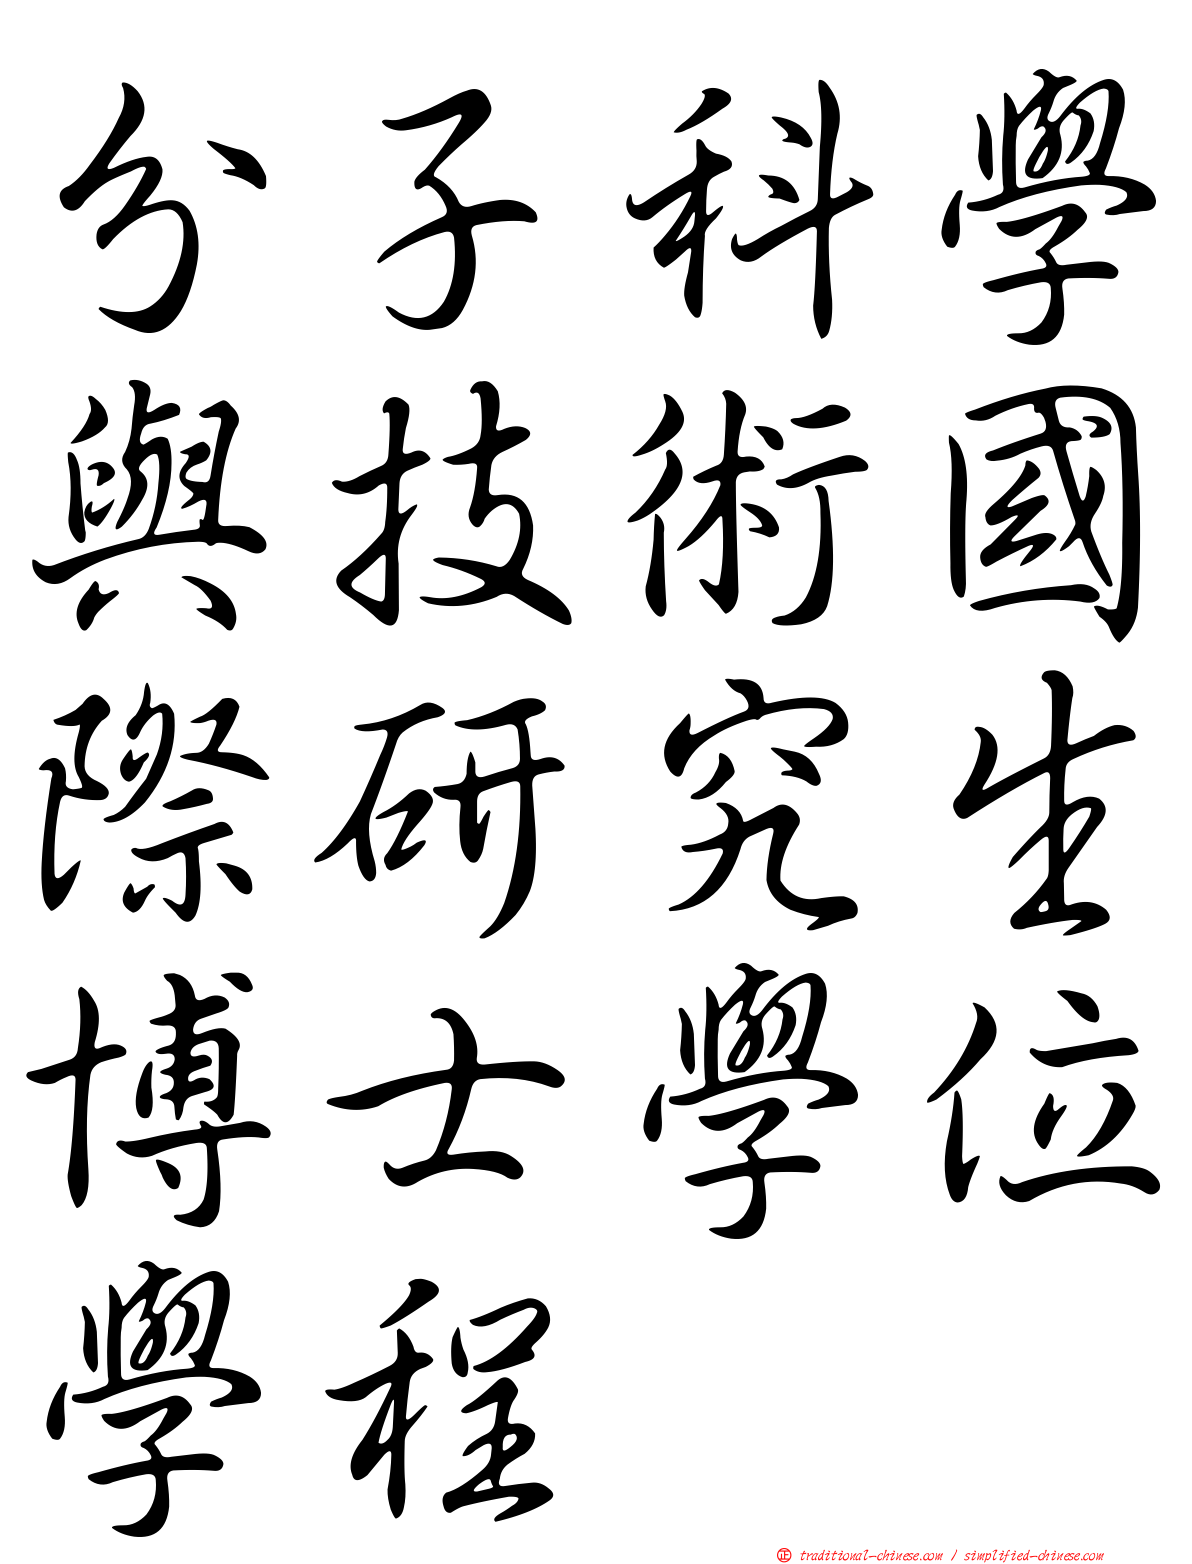 分子科學
與技術國
際研究生
博士學位
學程
正 traditional-chinese.com / simplified-chinese.com